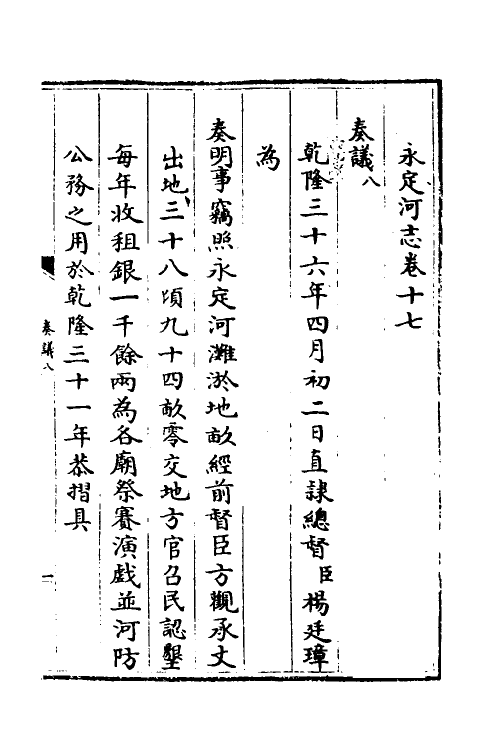 永定河志卷十七
奏議八
乾隆三十六年四月初二日直隷總督臣楊廷璋
為
奏明事竊照永定河灘淤地畝經前督臣方觀承丈
出地三十八頃九十四畝零交地方官召民認墾
每年收租銀一千餘兩為各廟祭賽演戯並河防
公務之用於乾隆三十一年恭摺具
奏議八
一